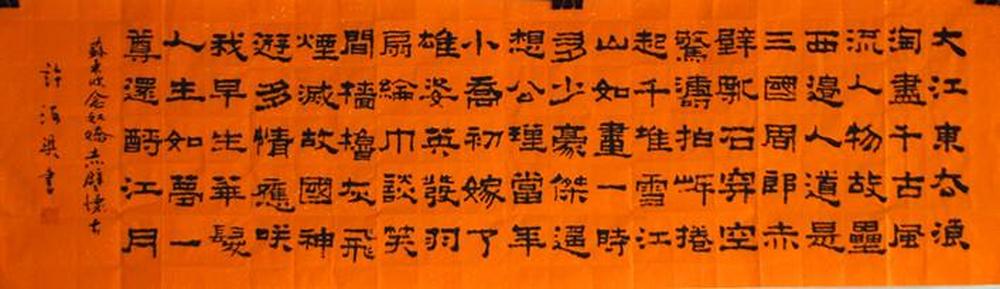 大江東去浪
淘盡千古風
流人物故壘
西邊人道是
三國周郎赤
壁亂石穿空
驚濤拍岸捲
起千堆雪江
山如畫一時
多少豪傑遥
想公瑾當年
小喬初嫁了
雄姿英發羽
扇綸巾談笑
間檣櫓灰飛
煙滅故國神
遊多情應咲
我早生華髮
人生如夢一
尊還酹江月
蘇東坡念奴嬌赤壁懷古
許書